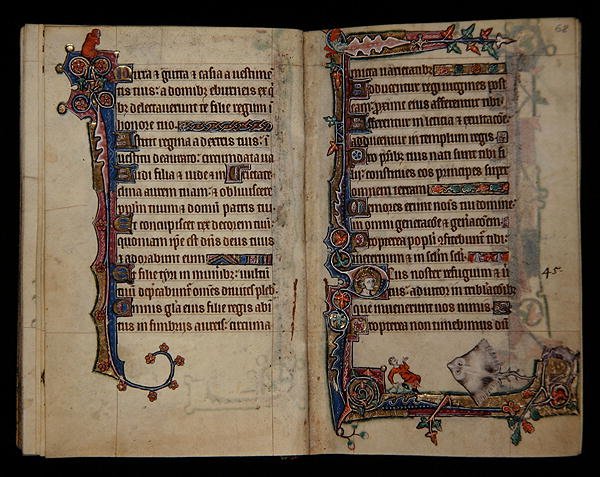 Mirra & gutta & casia a uestime
tis tuis: a domibꝫ eburneis ex q
bꝫ delectauerunt te filie regum i
honore tuo.
Astitit regina a dextris tuis: i
uestitu deaurato: circumdata ua
Audi filia & uide & in rietate
clina aurem tuam: & obliuiscere
pp̄lm tuum & domū patris tui
Et concupiscet rex decorem tuū
quoniam ip̄e est dn̄s deus tuus
& adorabunt eum
Et filie tyri in munibꝫ: uultū
tuū dep̄cabunt̄ om̄es diuites pleb̄
Omnis gl̄a eius filie regis abi
tus in fimbrijs aureis: circuma
68
micta uarietatibꝫ
Adducentur regi uirgines post
eam: proxime eius afferentur tibi
Afferentur in leticia & exultac̄oe:
adducentur in templum regis
Pro p̄ribꝫ tuis nati sunt tibi fi
lij: constitues eos principes sup̄r
omnem terram
Memores erunt nōis tui domine
in omni generac̄oe & gn̄ac̄oem
Propterea popl̄i ɔfitebunt̄ tibi:
in eternum & in sclm̄ scli̅
Deus noster refugium & u
tus: adiutor in tribulac̄oibꝫ
que inuenerunt nos nimis
Propterea non timebimus dū
45.